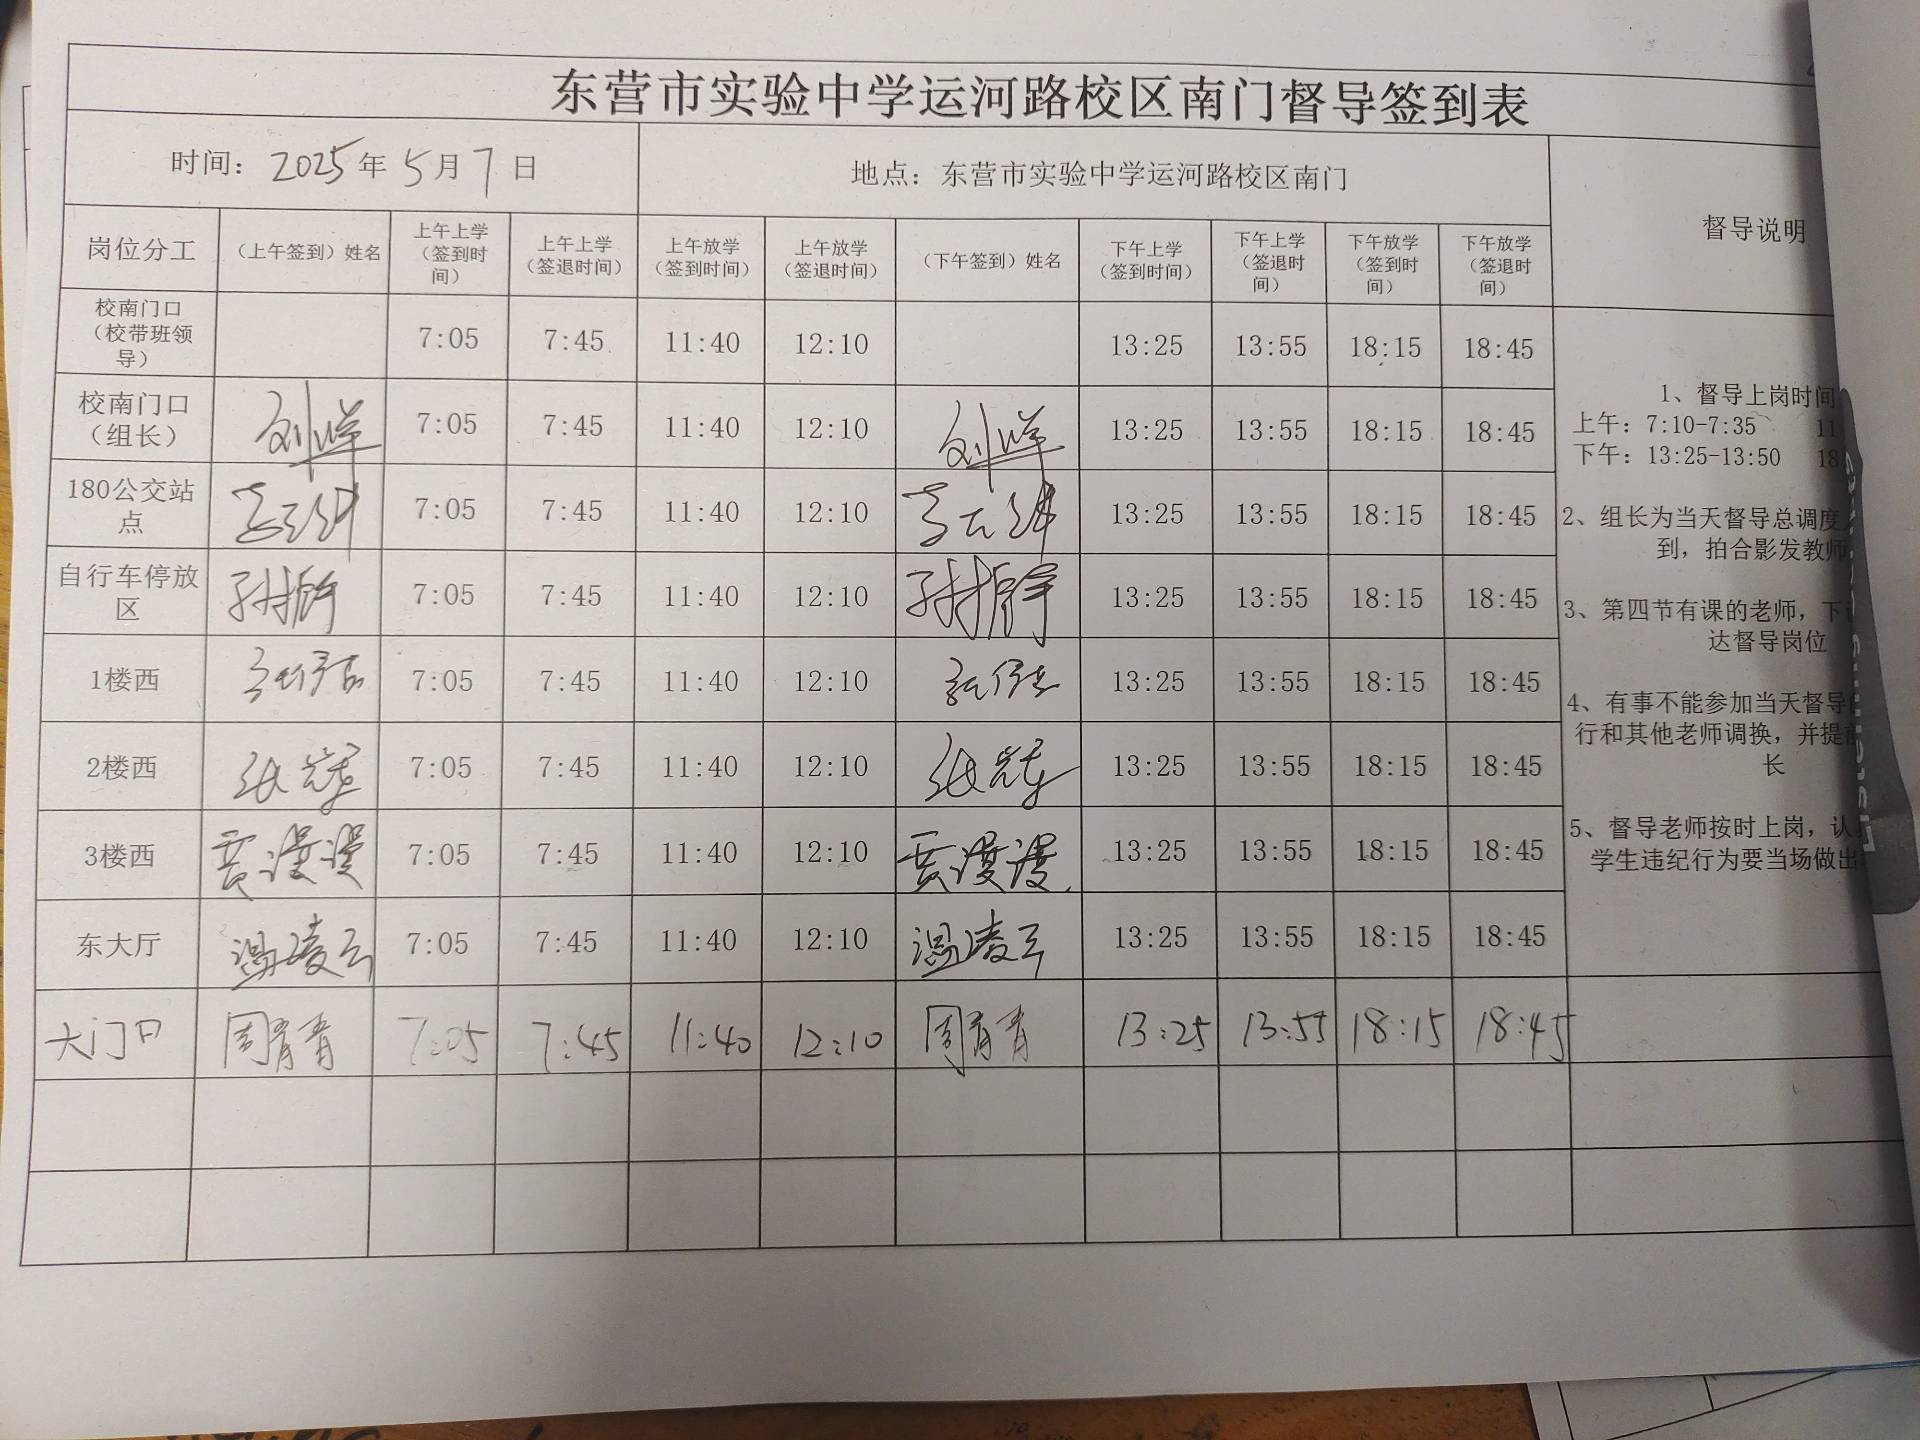 东营市实验中学运河路校区南门督导签到表
时间：2025年5月7日 地点：东营市实验中学运河路校区南门 督导说明
岗位分工 （上午签到）姓名 上午上学（签到时间） 上午上学（签退时间） 上午放学（签到时间） 上午放学（签退时间） （下午签到）姓名 下午上学（签到时间） 下午上学（签退时间） 下午放学（签到时间） 下午放学（签退时间）
校南门口（校带班领导） 7:05 7:45 11:40 12:10 13:25 13:55 18:15 18:45
校南门口（组长） 7:05 7:45 11:40 12:10 13:25 13:55 18:15 18:45
180公交站点 7:05 7:45 11:40 12:10 13:25 13:55 18:15 18:45
自行车停放区 7:05 7:45 11:40 12:10 13:25 13:55 18:15 18:45
1楼西 7:05 7:45 11:40 12:10 13:25 13:55 18:15 18:45
2楼西 7:05 7:45 11:40 12:10 13:25 13:55 18:15 18:45
3楼西 贾漫漫 7:05 7:45 11:40 12:10 贾漫漫 13:25 13:55 18:15 18:45
东大厅 温凌云 7:05 7:45 11:40 12:10 温凌云 13:25 13:55 18:15 18:45
大门口 周青青 7:05 7:45 11:40 12:10 周青青 13:25 13:55 18:15 18:45
1、督导上岗时间
上午：7:10-7:35 11
下午：13:25-13:50 18
2、组长为当天督导总调度
到，拍合影发教师
3、第四节有课的老师，下
达督导岗位
4、有事不能参加当天督导
行和其他老师调换，并提
长
5、督导老师按时上岗，认
学生违纪行为要当场做出